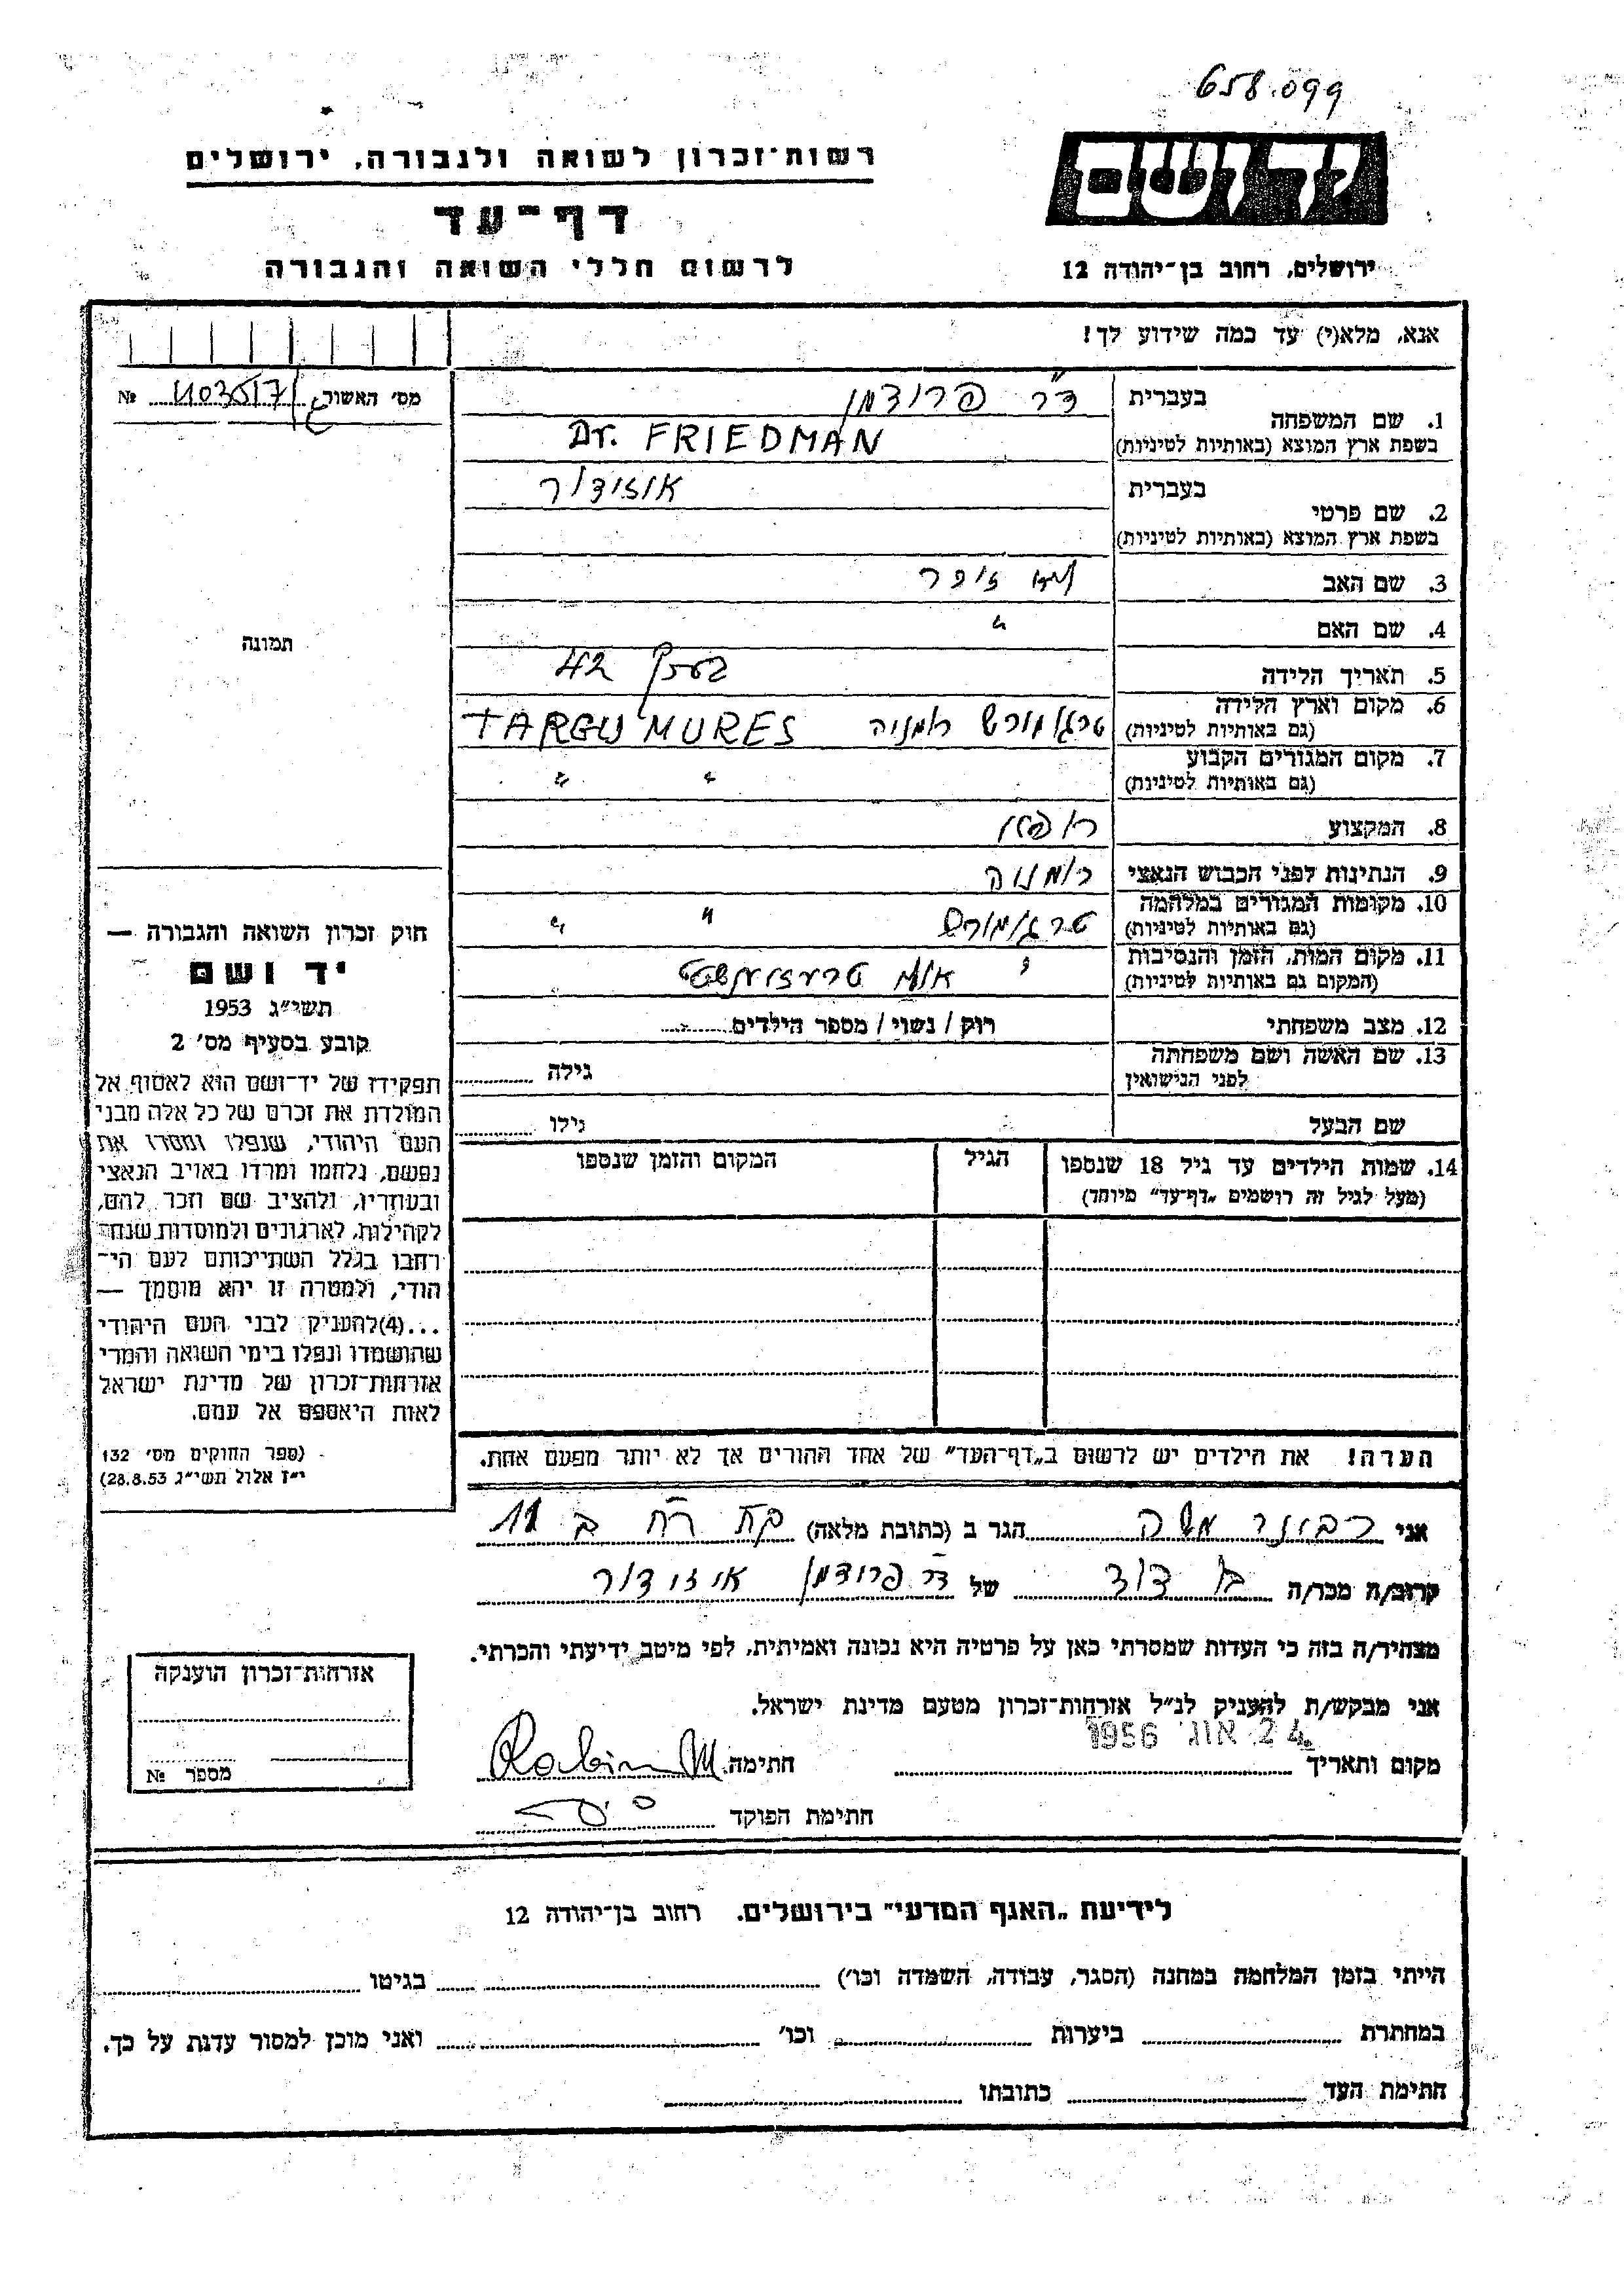 658.099
רשות־זכרון לשואה ולגבורה, ירושלים
יד ושם
דף־עד
לרשום חללי השואה והגבורה
ירושלים, רחוב בן־יהודה 12
אנא, מלא(י) עד כמה שידוע לך!
מס' האשור № 1103517/
1. שם המשפחה
בעברית ד"ר פרידמן
בשפת ארץ המוצא (באותיות לטיניות) Dr. FRIEDMAN
2. שם פרטי
בעברית איזידור
בשפת ארץ המוצא (באותיות לטיניות)
3. שם האב לא זיכר
4. שם האם "
תמונה
5. תאריך הלידה בערך 42
6. מקום וארץ הלידה
(גם באותיות לטיניות) טרגו מורש רומניה TARGU MURES
7. מקום המגורים הקבוע
(גם באותיות לטיניות) " "
8. המקצוע רופא
9. הנתינות לפני הכבוש הנאצי רומניה
10. מקומות המגורים במלחמה
(גם באותיות לטיניות) טרגו מורש " "
11. מקום המות, הזמן והנסיבות
(המקום גם באותיות לטיניות)
12. מצב משפחתי רוק / נשוי / מספר הילדים
13. שם האשה ושם משפחתה
לפני הנישואין גילה
שם הבעל גילו
14. שמות הילדים עד גיל 18 שנספו
(מעל לגיל זה רושמים „דף־עד" מיוחד)
הגיל
המקום והזמן שנספו
חוק זכרון השואה והגבורה —
יד ושם
תשי"ג 1953
קובע בסעיף מס' 2
תפקידו של יד־ושם הוא לאסוף אל
המולדת את זכרם של כל אלה מבני
העם היהודי, שנפלו ומסרו את
נפשם, נלחמו ומרדו באויב הנאצי
ובעוזריו, ולהציב שם וזכר להם,
לקהילות, לארגונים ולמוסדות שנח־
רחבו בגלל השתייכותם לעם הי־
הודי, ולמטרה זו יהא מוסמך —
...(4)להעניק לבני העם היהודי
שהושמדו ונפלו בימי השואה והמרי
אזרחות־זכרון של מדינת ישראל
לאות היאספם אל עמם.
(ספר החוקים מס' 132
י"ז אלול תשי"ג 28.8.53)
הערה! את הילדים יש לרשום ב„דף־העד" של אחד ההורים אך לא יותר מפעם אחת.
אני רבינר משה הגר ב (כתובת מלאה)
קרוב/ה מכר/ה בן דוד של ד"ר פרידמן איזידור
מצהיר/ה בזה כי העדות שמסרתי כאן על פרטיה היא נכונה ואמיתית, לפי מיטב ידיעתי והכרתי.
אני מבקש/ת להעניק לנ"ל אזרחות־זכרון מטעם מדינת ישראל.
מקום ותאריך 24 אוג' 1956 חתימה
חתימת הפוקד
אזרחות־זכרון הוענקה
מספר №
לידיעת „האגף המדעי" בירושלים. רחוב בן־יהודה 12
הייתי בזמן המלחמה במחנה (הסגר, עבודה, השמדה וכו') בגיטו
במחתרת ביערות וכו' ואני מוכן למסור עדות על כך.
חתימת העד כתובתו